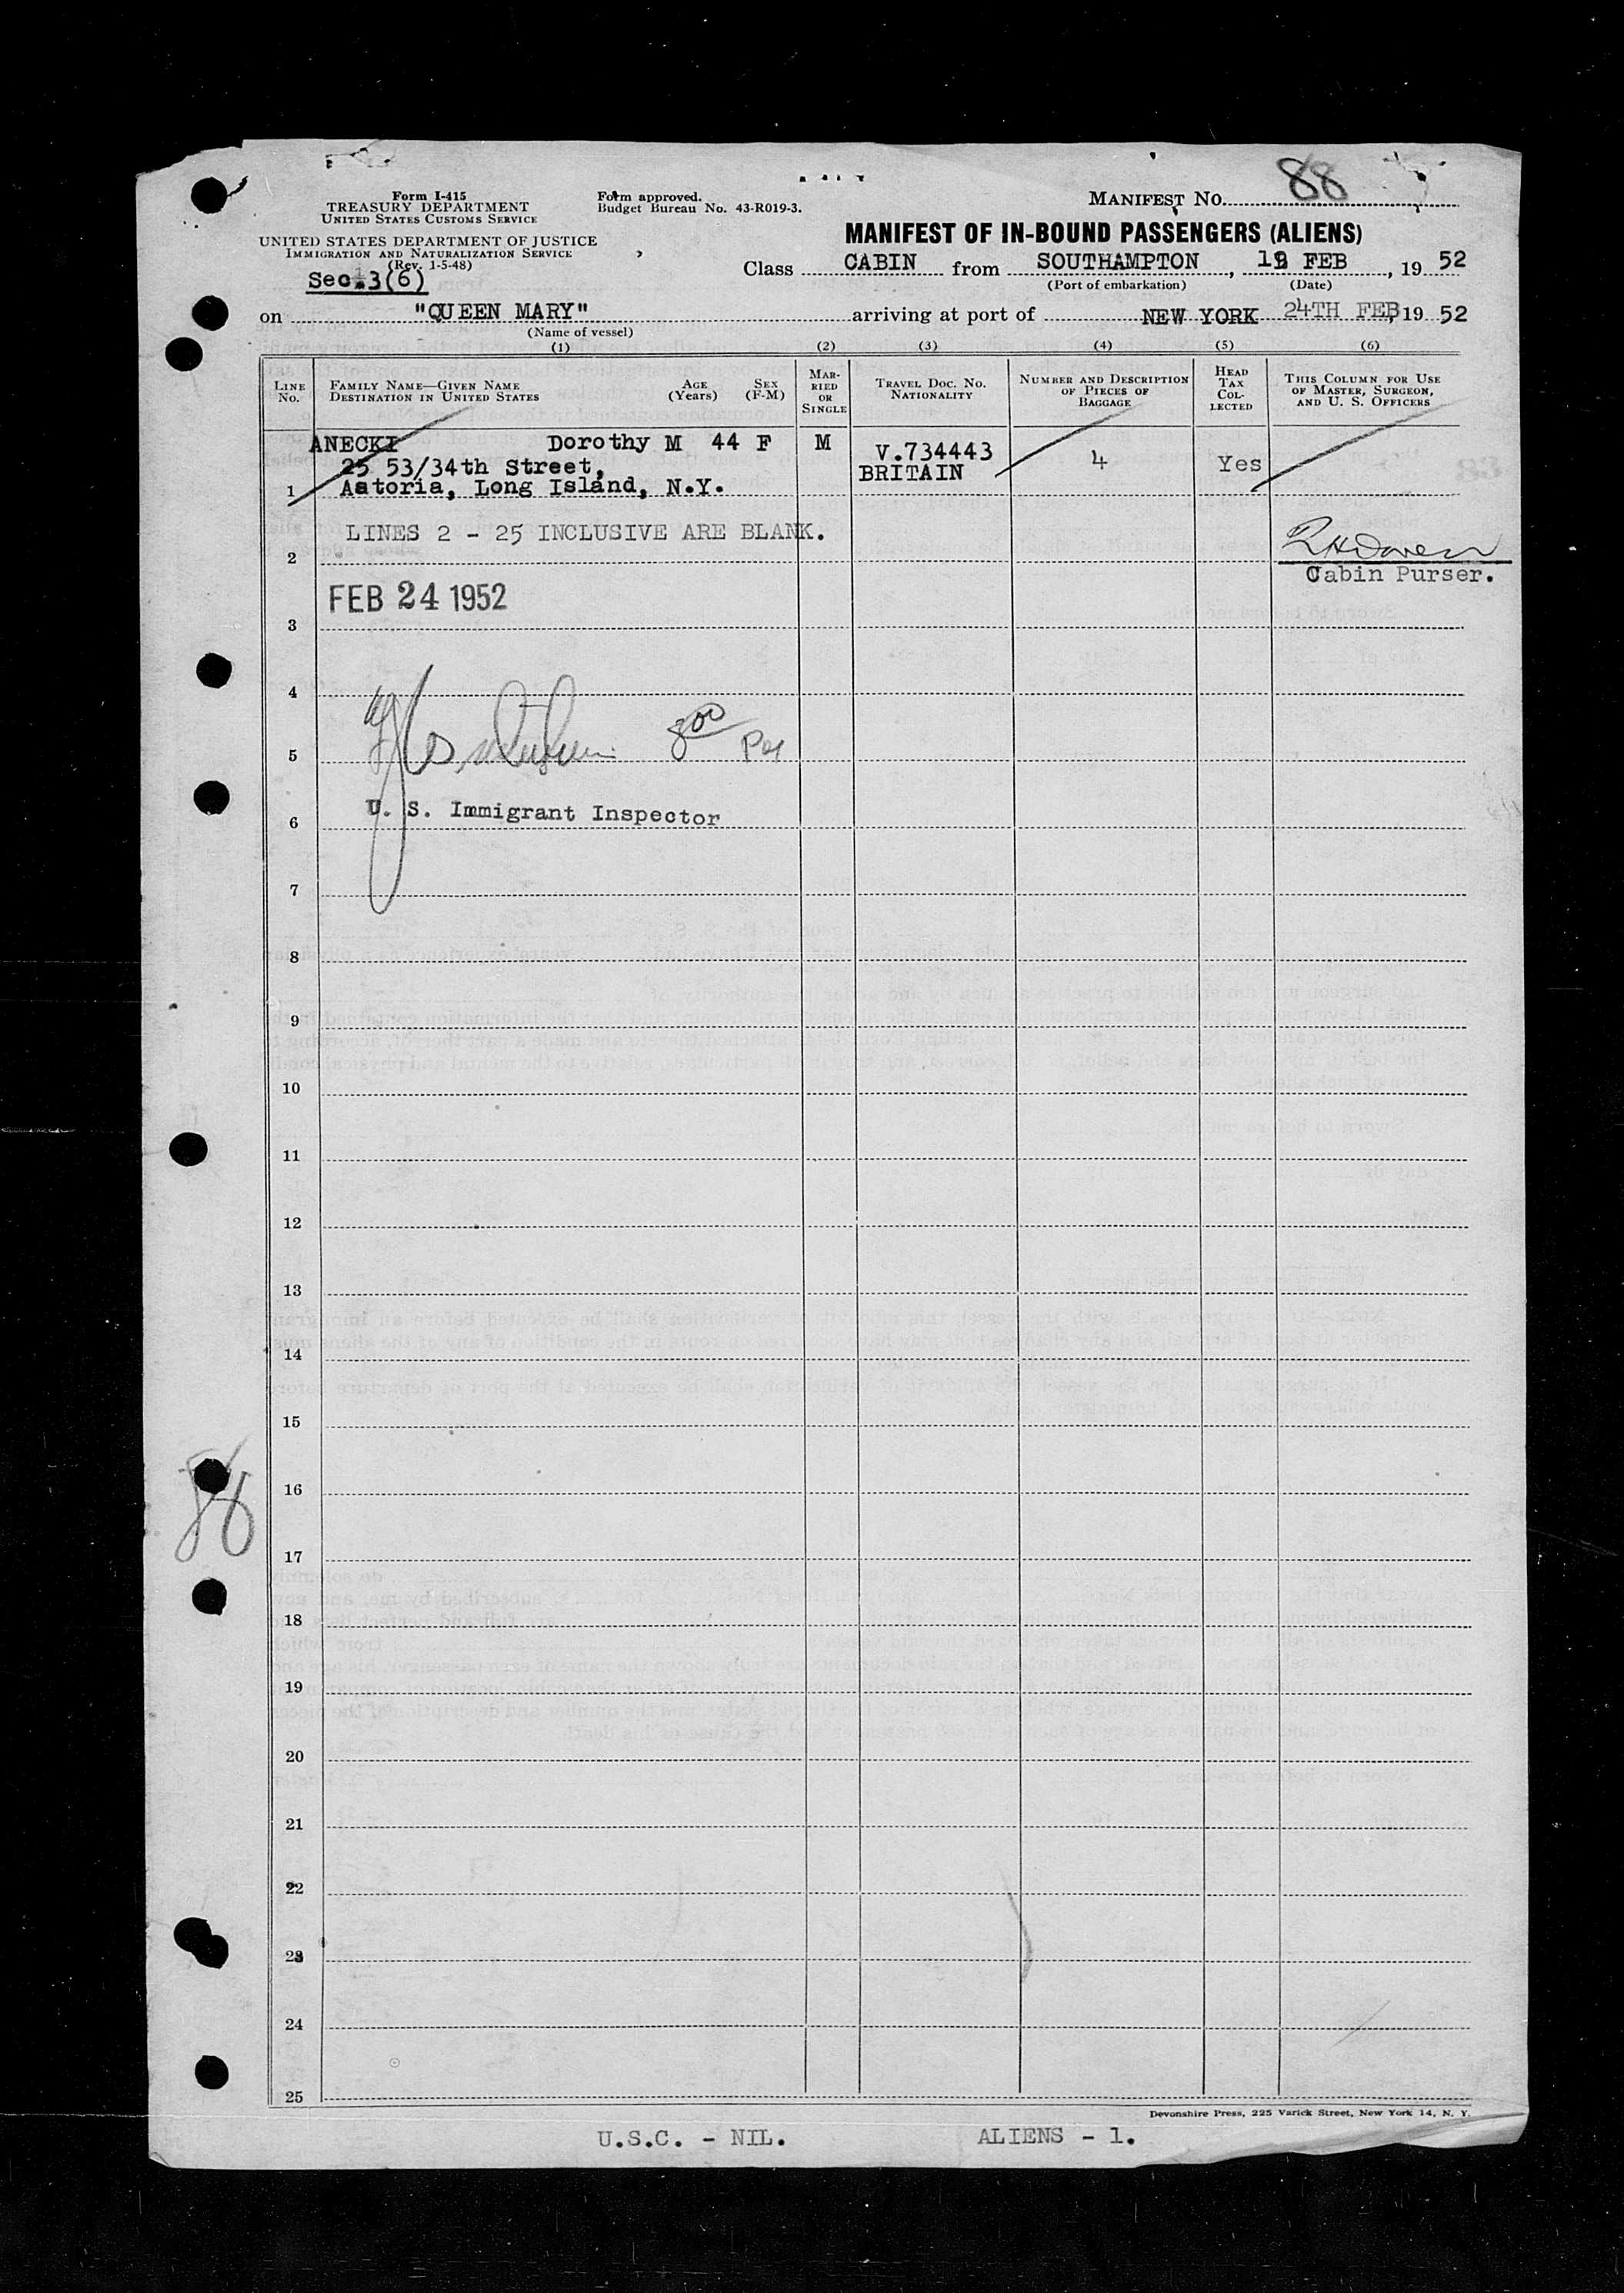 88
Form I-415
TREASURY DEPARTMENT
UNITED STATES CUSTOMS SERVICE
Form approved.
Budget Bureau No. 43-R019-3.
MANIFEST No.
UNITED STATES DEPARTMENT OF JUSTICE
IMMIGRATION AND NATURALIZATION SERVICE
(Rev. 1-5-48)
Sec. 3(6)
MANIFEST OF IN-BOUND PASSENGERS (ALIENS)
Class CABIN from SOUTHAMPTON, FEB, 19 52
(Port of embarkation) (Date)
on "QUEEN MARY" arriving at port of NEW YORK 24TH FEB, 19 52
(Name of vessel)
(1) (2) (3) (4) (5) (6)
LINE No.
FAMILY NAME—GIVEN NAME
DESTINATION IN UNITED STATES
AGE (Years)
SEX (F-M)
MARRIED OR SINGLE
TRAVEL DOC. NO.
NATIONALITY
NUMBER AND DESCRIPTION
OF PIECES OF
BAGGAGE
HEAD TAX COLLECTED
THIS COLUMN FOR USE
OF MASTER, SURGEON,
AND U. S. OFFICERS
ANECKI Dorothy M 44 F M V.734443 4 Yes
25 53/34th Street, BRITAIN
1 Astoria, Long Island, N.Y.
LINES 2 - 25 INCLUSIVE ARE BLANK.
2
Cabin Purser.
FEB 24 1952
3
4
800
5
U. S. Immigrant Inspector
6
7
8
9
10
11
12
13
14
15
16
17
18
19
20
21
22
23
24
25
Devonshire Press, 225 Varick Street, New York 14, N. Y.
U.S.C. - NIL. ALIENS - 1.